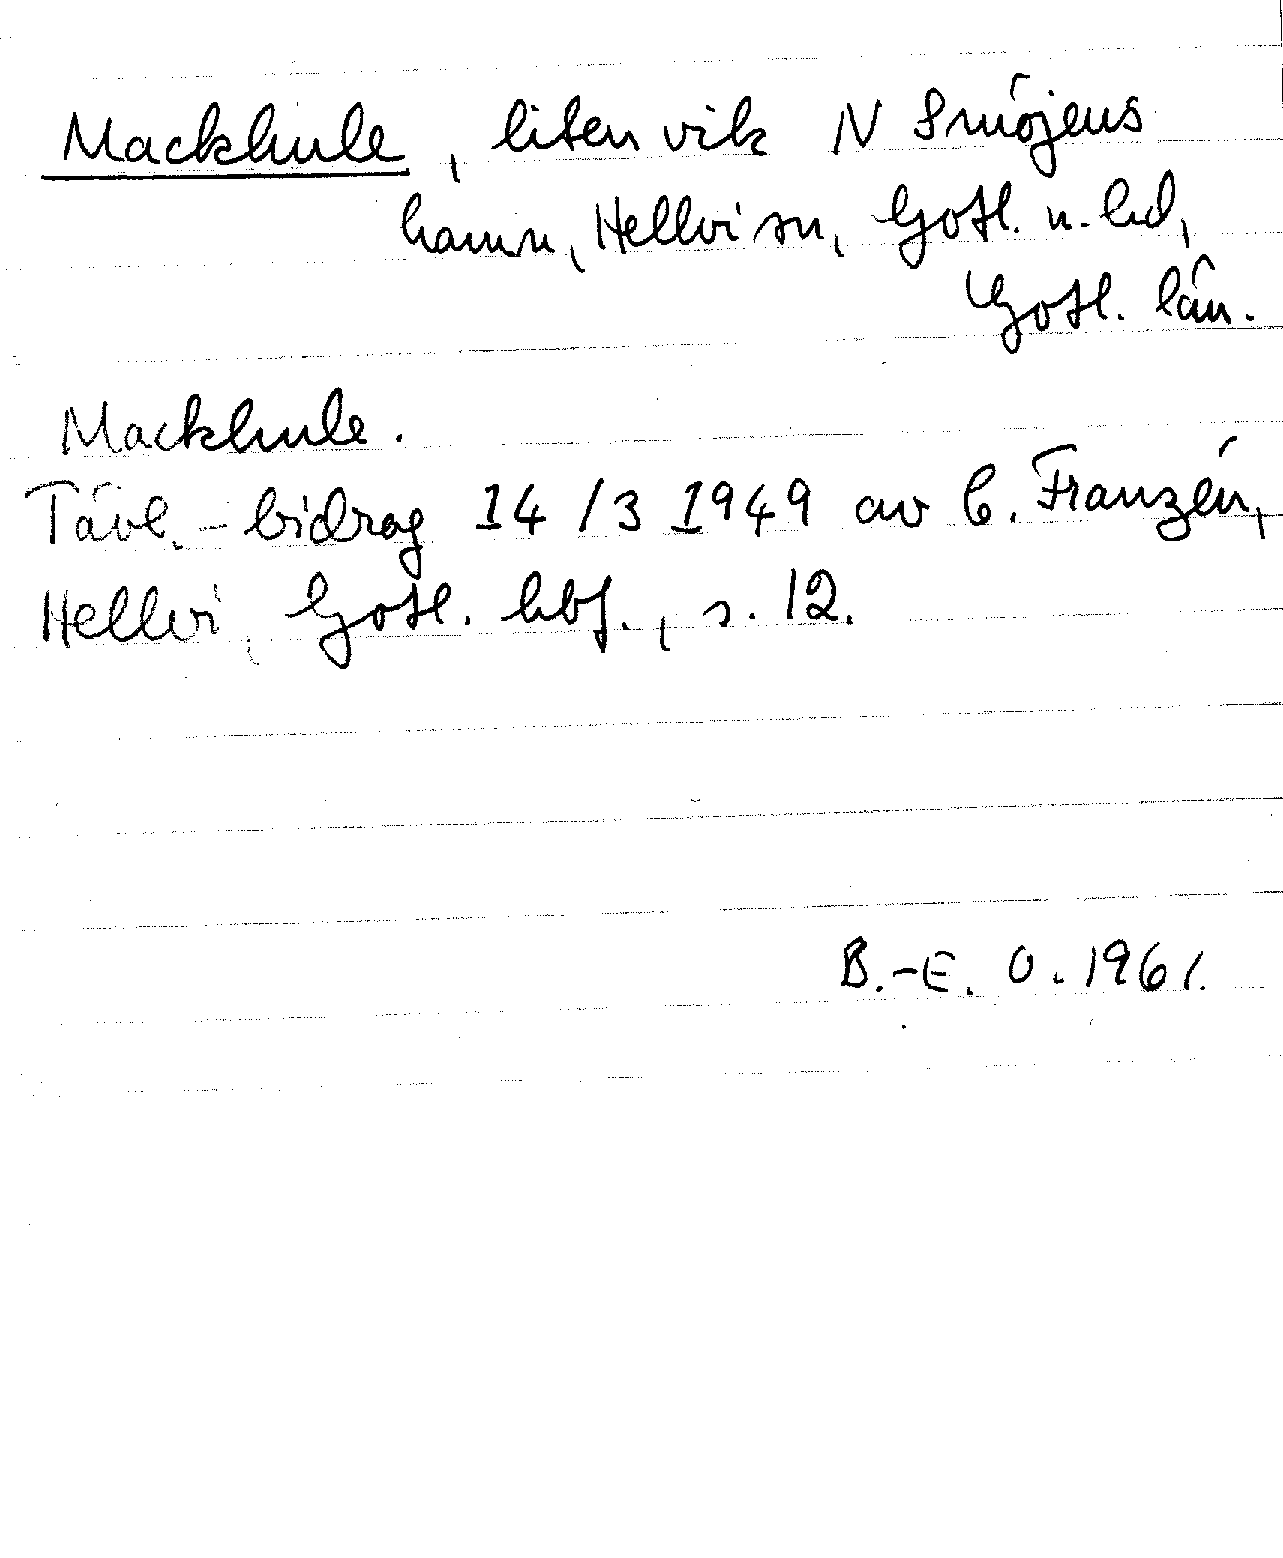 Mackhule, liten vik N Smöjens
hamn, Hellvi sn, Gotl. n. hd,
Gotl. län.
Mackhule.
Tävl.-bidrag 14/3 1949 av C. Franzén,
Hellvi, Gotl. hbf., s. 12.
B.-E. O. 1961.